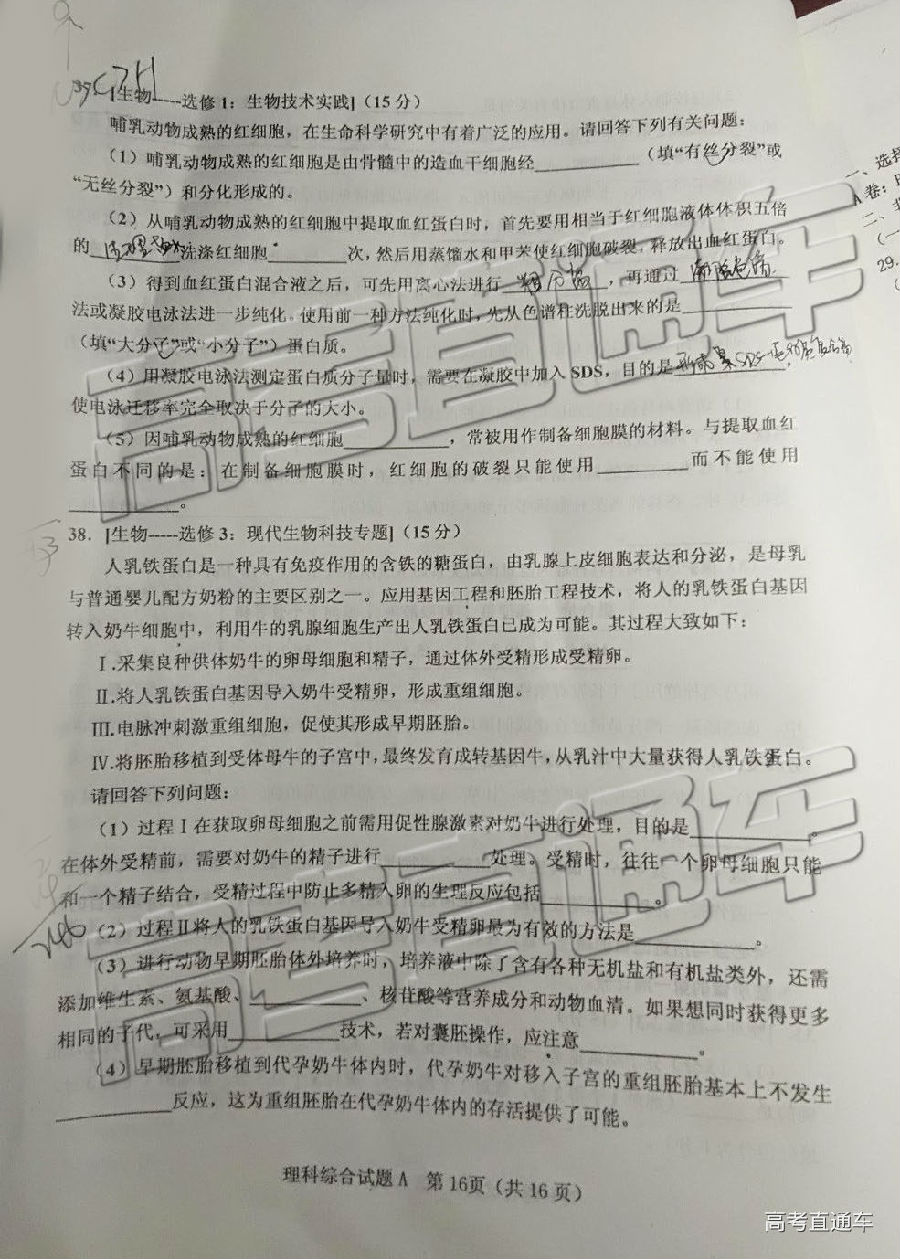 [生物-----选修1：生物技术实践]（15分）
哺乳动物成熟的红细胞，在生命科学研究中有着广泛的应用。请回答下列有关问题：
（1）哺乳动物成熟的红细胞是由骨髓中的造血干细胞经__________（填“有丝分裂”或
“无丝分裂”）和分化形成的。
一、选择
A卷：
（2）从哺乳动物成熟的红细胞中提取血红蛋白时，首先要用相当于红细胞液体体积五倍
二、
的 生理盐水 洗涤红细胞________次，然后用蒸馏水和甲苯使红细胞破裂，释放出血红蛋白。
（一
29.
（3）得到血红蛋白混合液之后，可先用离心法进行 粗分离 ，再通过 凝胶色谱
法或凝胶电泳法进一步纯化。使用前一种方法纯化时，先从色谱柱洗脱出来的是__________
（填“大分子”或“小分子”）蛋白质。
（4）用凝胶电泳法测定蛋白质分子量时，需要在凝胶中加入SDS，目的是
使电泳迁移率完全取决于分子的大小。
（5）因哺乳动物成熟的红细胞__________，常被用作制备细胞膜的材料。与提取血红
蛋白不同的是：在制备细胞膜时，红细胞的破裂只能使用________而不能使用
__________。
38. [生物-----选修3：现代生物科技专题]（15分）
人乳铁蛋白是一种具有免疫作用的含铁的糖蛋白，由乳腺上皮细胞表达和分泌，是母乳
与普通婴儿配方奶粉的主要区别之一。应用基因工程和胚胎工程技术，将人的乳铁蛋白基因
转入奶牛细胞中，利用牛的乳腺细胞生产出人乳铁蛋白已成为可能。其过程大致如下：
Ⅰ.采集良种供体奶牛的卵母细胞和精子，通过体外受精形成受精卵。
Ⅱ.将人乳铁蛋白基因导入奶牛受精卵，形成重组细胞。
Ⅲ.电脉冲刺激重组细胞，促使其形成早期胚胎。
Ⅳ.将胚胎移植到受体母牛的子宫中，最终发育成转基因牛，从乳汁中大量获得人乳铁蛋白。
请回答下列问题：
（1）过程Ⅰ在获取卵母细胞之前需用促性腺激素对奶牛进行处理，目的是__________。
在体外受精前，需要对奶牛的精子进行__________处理。受精时，往往一个卵母细胞只能
和一个精子结合，受精过程中防止多精入卵的生理反应包括__________。
（2）过程Ⅱ将人的乳铁蛋白基因导入奶牛受精卵最为有效的方法是__________。
（3）进行动物早期胚胎体外培养时，培养液中除了含有各种无机盐和有机盐类外，还需
添加维生素、氨基酸、__________、核苷酸等营养成分和动物血清。如果想同时获得更多
相同的子代，可采用__________技术，若对囊胚操作，应注意__________。
（4）早期胚胎移植到代孕奶牛体内时，代孕奶牛对移入子宫的重组胚胎基本上不发生
__________反应，这为重组胚胎在代孕奶牛体内的存活提供了可能。
理科综合试题A 第16页（共16页）
高考直通车
高考直通车
高考直通车